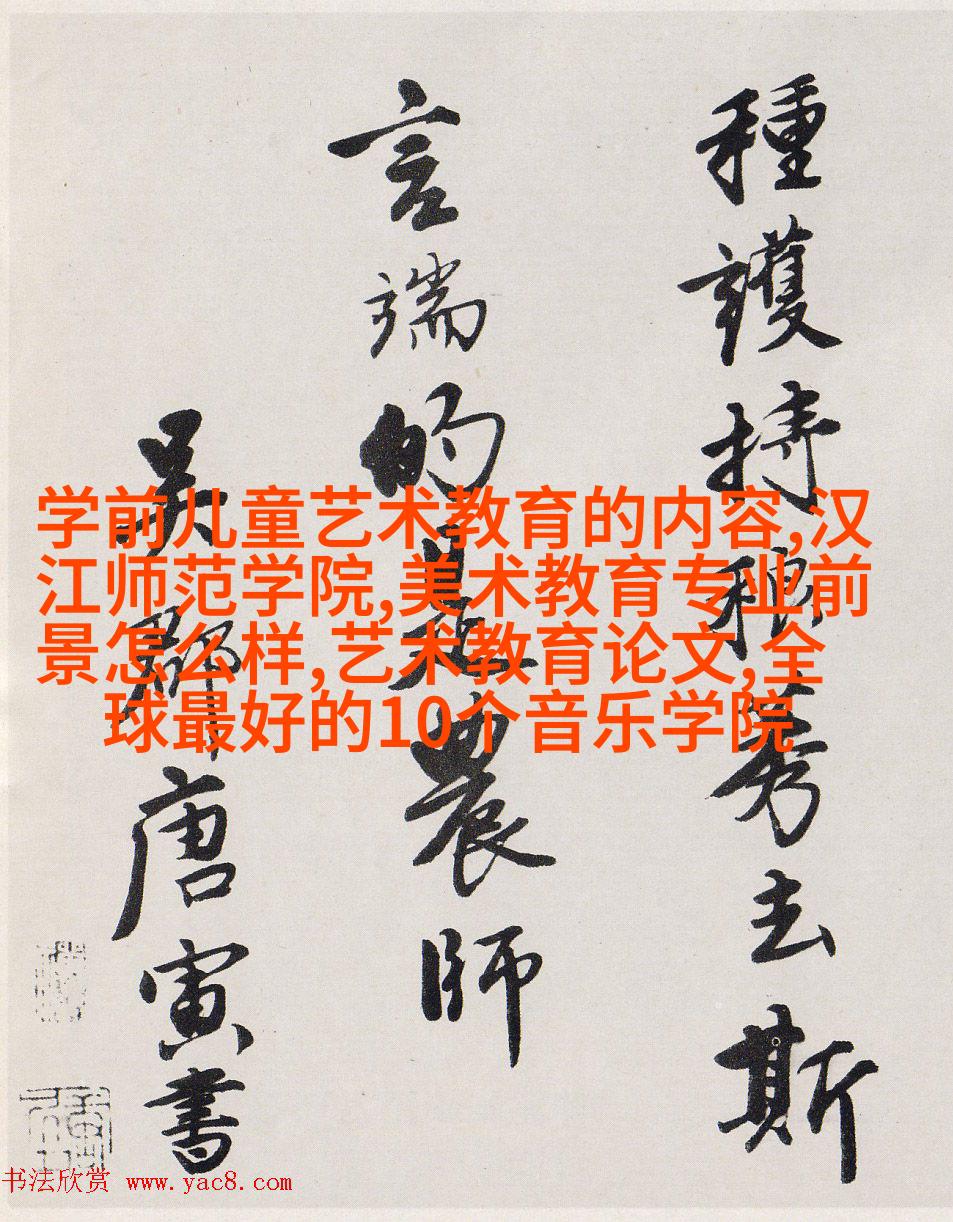 種護持稂莠去斯
言端的是農師
吳郡唐寅書
学前儿童艺术教育的内容,汉
江师范学院,美术教育专业前
景怎么样,艺术教育论文,全
球最好的10个音乐学院
书法欣赏 www.yac8.com